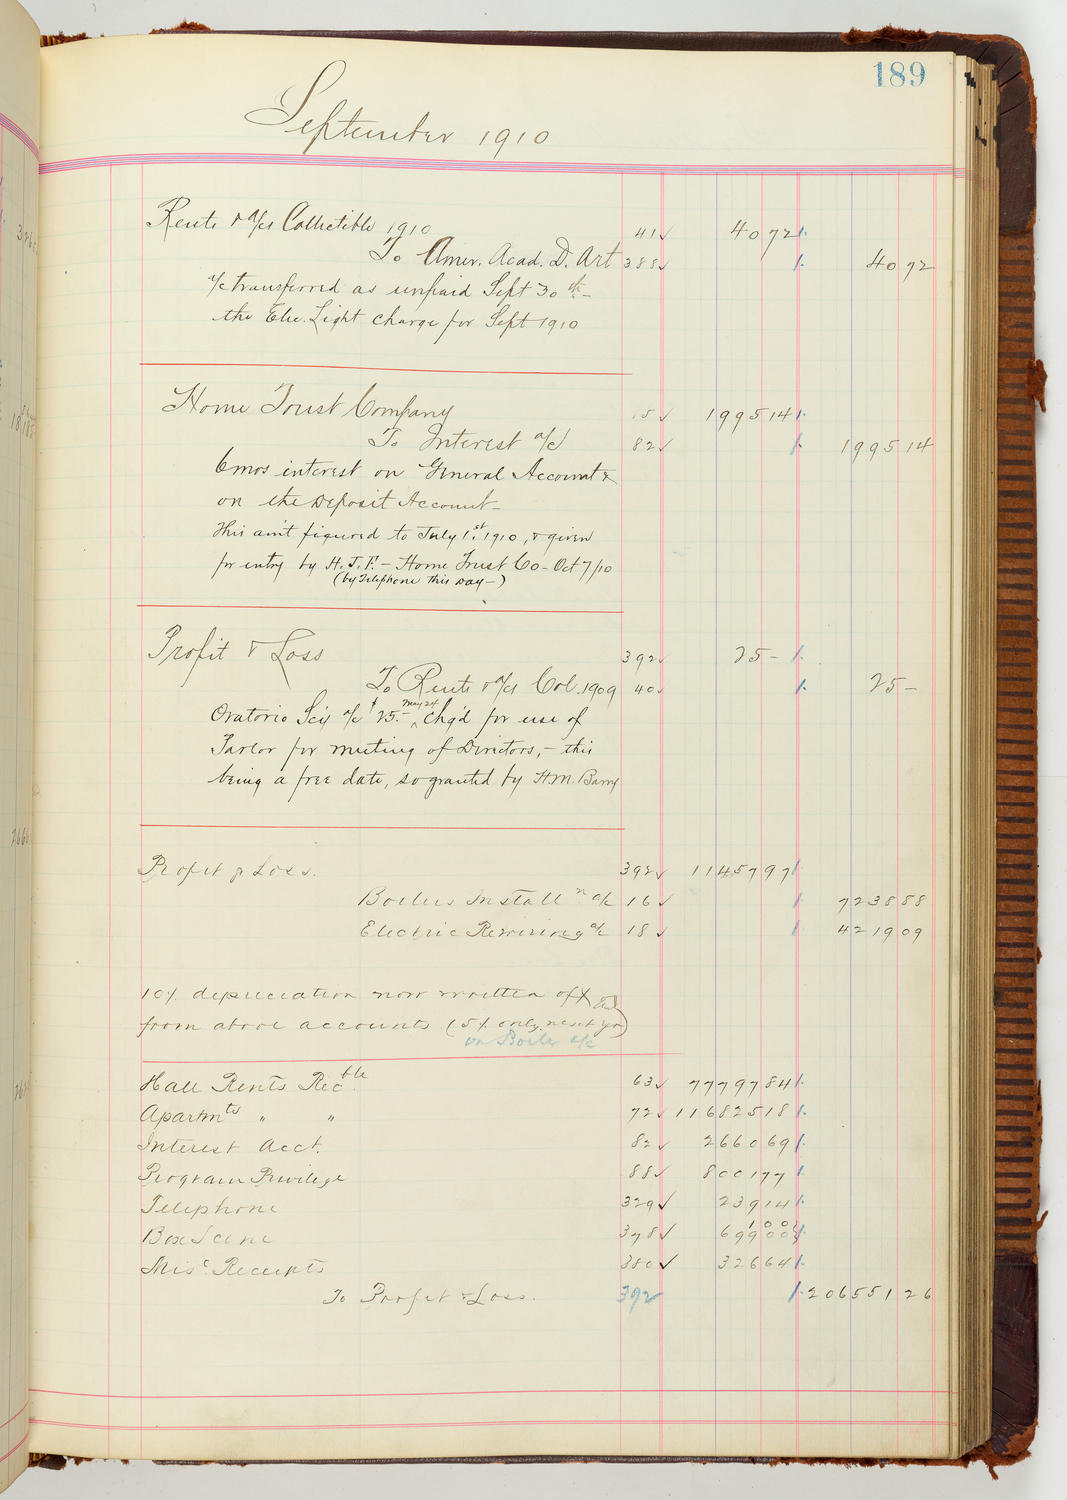 189
September 1910
Rents & a/cs Collectible 1910 41 ✓ 40 72
To Amer. Acad. D. Art 388 ✓ 40 72
a/c transferred as unpaid Sept 30th –
the Elec. Light charge for Sept 1910
Home Trust Company 15 ✓ 1995 14
To Interest a/c 82 ✓ 1995 14
6 mos interest on General Account &
on the Deposit Account –
This am't figured to July 1st 1910, & given
for entry by H.T.F. – Home Trust Co – Oct 7/10
(by Telephone this day –)
Profit & Loss 392 ✓ 25 –
To Rents & a/cs Col. 1909 40 ✓ 25 –
Oratorio Soc'y a/c $25.– May 24 chg'd for use of
Parlor for meeting of Directors, – this
being a free date, so granted by H.M. Barry
Profit & Loss. 392 ✓ 11457 97
Boilers Install n. a/c 16 ✓ 7238 88
Electric Rewiring a/c 18 ✓ 4219 09
10% depreciation now written off
from above accounts (5% only next yr)
on Boiler a/c
Hall Rents Rec'ble 63 ✓ 77797 84
Apartmts " " 72 ✓ 116825 18
Interest Acct. 82 ✓ 2660 69
Program Privilege 88 ✓ 8001 77
Telephone 329 ✓ 239 14
Box Scene 378 ✓ 699 00 100
Misc. Receipts 380 ✓ 326 64
To Profit & Loss. 392 206551 26